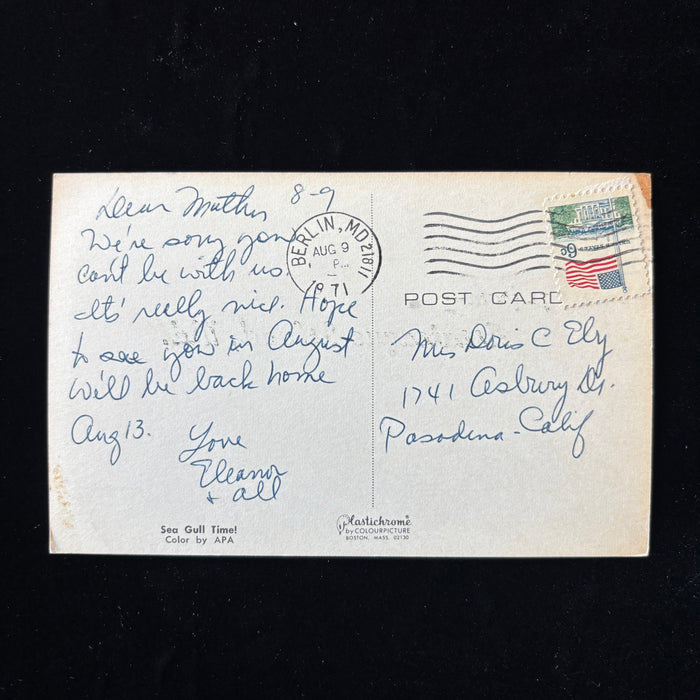 8-9
Dear Mother
We're sorry you
can't be with us.
It's really nice. Hope
to see you in August
Will be back home
Aug 13.
Love
Eleanor
+ all
Sea Gull Time!
Color by APA
BERLIN, MD 21811
AUG 9
P
1971
6c
POST CARD
Mrs Doris C Ely
1741 Asbury Dr.
Pasadena - Calif
Plastichrome®
by COLOURPICTURE
BOSTON, MASS. 02130